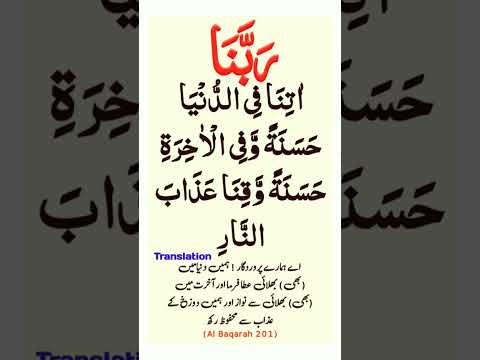 رَبَّنَا
اٰتِنَا فِی الدُّنْیَا
حَسَنَةً وَّفِی الْاٰخِرَةِ
حَسَنَةً وَّقِنَا عَذَابَ
النَّارِ
Translation
اے ہمارے پروردگار ! ہمیں دنیا میں
(بھی) بھلائی عطا فرما اور آخرت میں
(بھی) بھلائی سے نواز اور ہمیں دوزخ کے
عذاب سے محفوظ رکھ
(Al Baqarah 201)